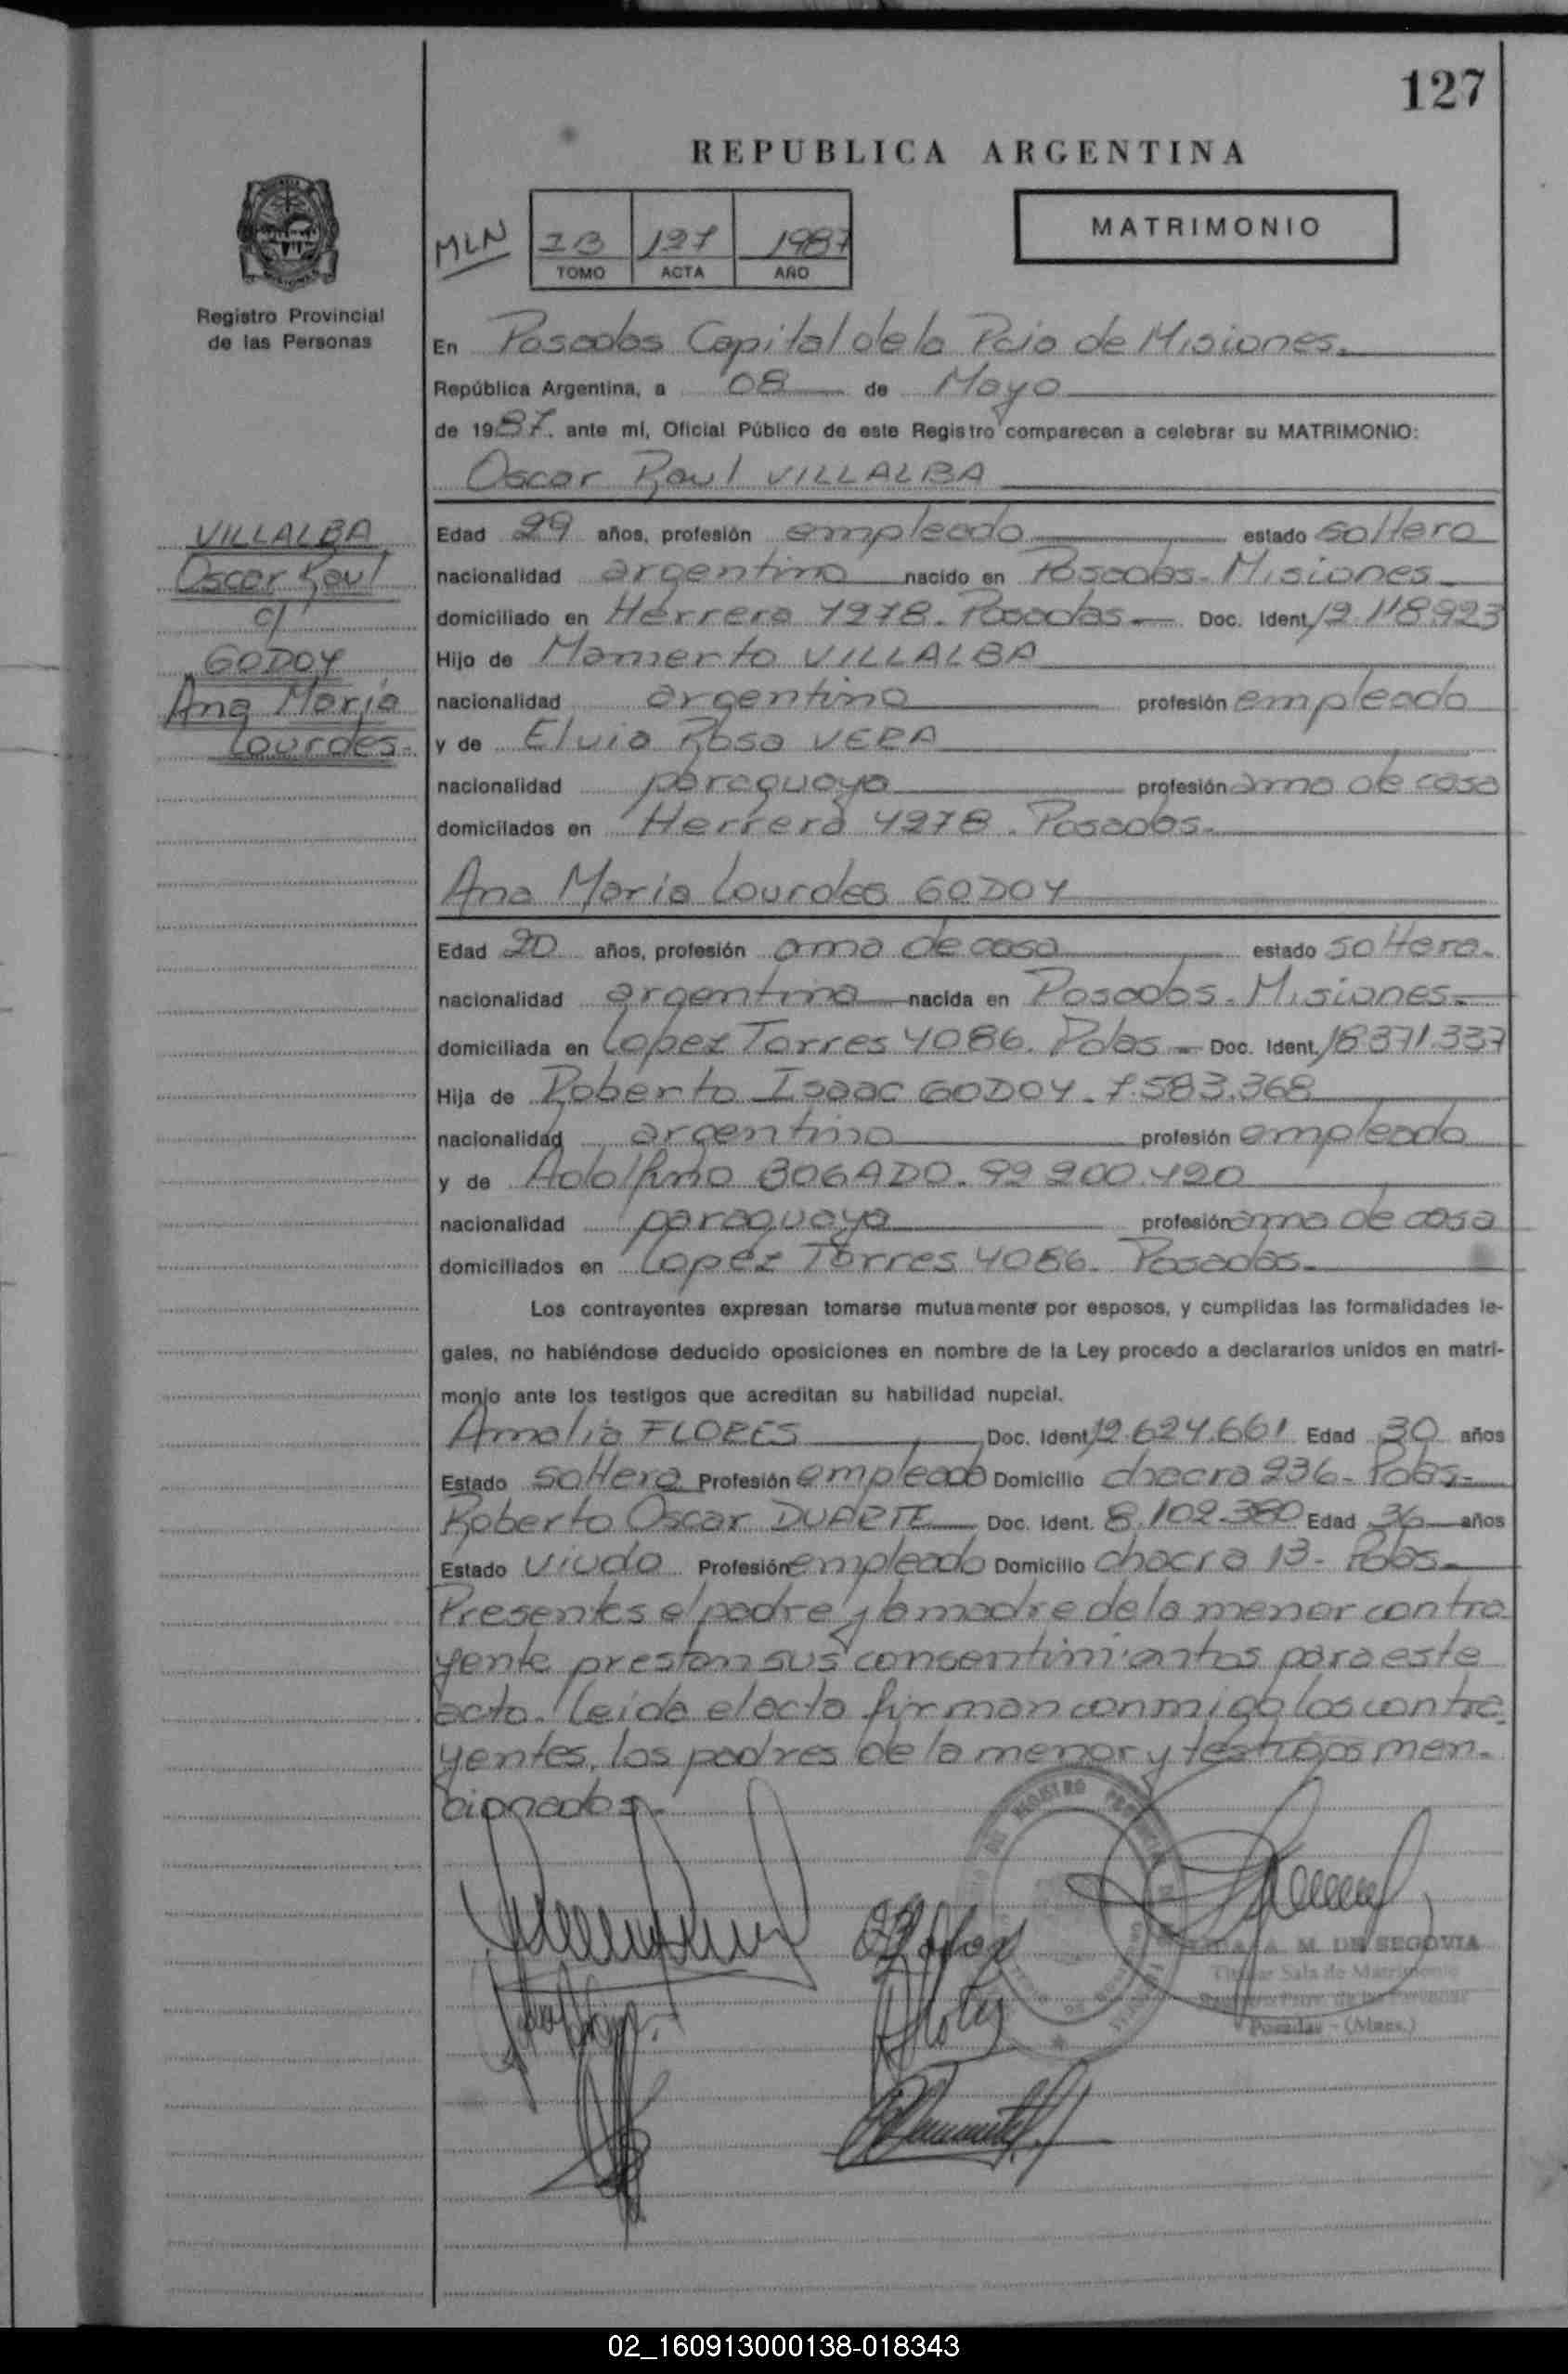 127
REPUBLICA ARGENTINA
MATRIMONIO
MLN
1B 127 1987
TOMO ACTA AÑO
Registro Provincial
de las Personas
En Posadas Capital de la Pcia de Misiones.
República Argentina, a 08 de Mayo
de 1987. ante mí, Oficial Público de este Registro comparecen a celebrar su MATRIMONIO:
Oscar Raul VILLALBA
VILLALBA
Oscar Raul
c/
GODOY
Ana Maria
Lourdes.
Edad 29 años, profesión empleado estado soltero
nacionalidad argentino nacido en Posadas - Misiones
domiciliado en Herrera 4278. Posadas. Doc. Ident. 12.118.923
Hijo de Mamerto VILLALBA
nacionalidad argentino profesión empleado
y de Elvia Rosa VERA
nacionalidad paraguaya profesión ama de casa
domiciliados en Herrera 4278. Posadas.
Ana Maria Lourdes GODOY
Edad 20 años, profesión ama de casa estado soltera.
nacionalidad argentina nacida en Posadas. Misiones.
domiciliada en Lopez Torres 4086. Pdas. Doc. Ident. 18.371.337
Hija de Roberto Isaac GODOY. 7.583.368
nacionalidad argentino profesión empleado
y de Adolfina BOGADO. 92.200.420
nacionalidad paraguaya profesión ama de casa
domiciliados en Lopez Torres 4086. Posadas.
Los contrayentes expresan tomarse mutuamente por esposos, y cumplidas las formalidades le-
gales, no habiéndose deducido oposiciones en nombre de la Ley procedo a declararlos unidos en matri-
monio ante los testigos que acreditan su habilidad nupcial.
Amalia FLORES Doc. Ident. 12.624.661 Edad 30 años
Estado soltera Profesión empleada Domicilio chacra 236- Pdas.
Roberto Oscar DUARTE Doc. Ident. 8.102.380 Edad 36 años
Estado viudo Profesión empleado Domicilio chacra 13- Pdas.
Presentes el padre y la madre de la menor contra
yente prestan sus consentimientos para este
acto. Leída el acta firman conmigo los contra
yentes, los padres de la menor y testigos men-
cionados.
M. DE SEGOVIA
Titular Sala de Matrimonio
Posadas - (Mnes.)
02_160913000138-018343